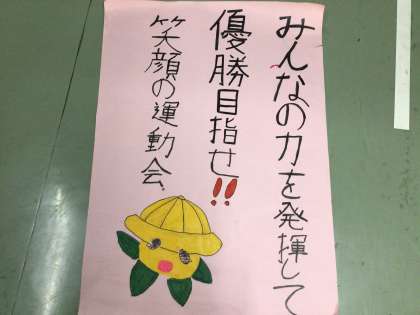 みんなの力を発揮して
優勝目指せ!!
笑顔の運動会、